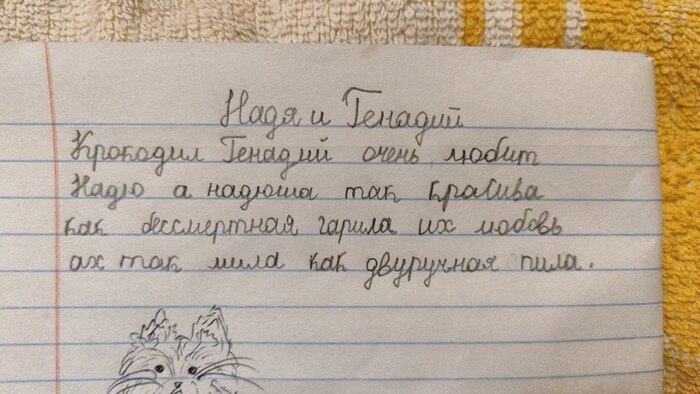 Надя и Генадий
Крокодил Генадий очень любит
Надю а надюша так красива
как бессмертная гарила их любовь
ах так мила как двуручная пила.